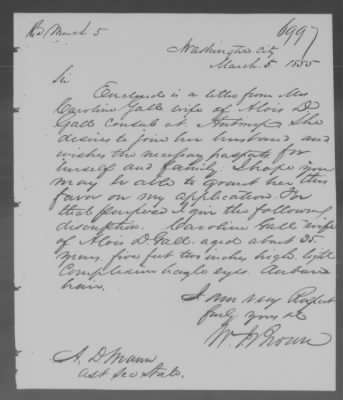 Rd March 5
6997
Washington City
March 5 1855
Sir
Enclosed is a letter from Mrs
Caroline Gall wife of Alois D
Gall Consul at Antwerp She
desires to join her husband and
wishes the necessary passports for
herself and family I hope you
may be able to grant her this
favor on my application. For
that purpose I give the following
description. Caroline Gall wife
of Alois D. Gall. aged about 35
years, five feet two inches high, light
Complexion hazle eyes. Auburn
hair.
I am very Respect
fully yours &c
W. J. Brown
A. D Mann
asst Sec State.